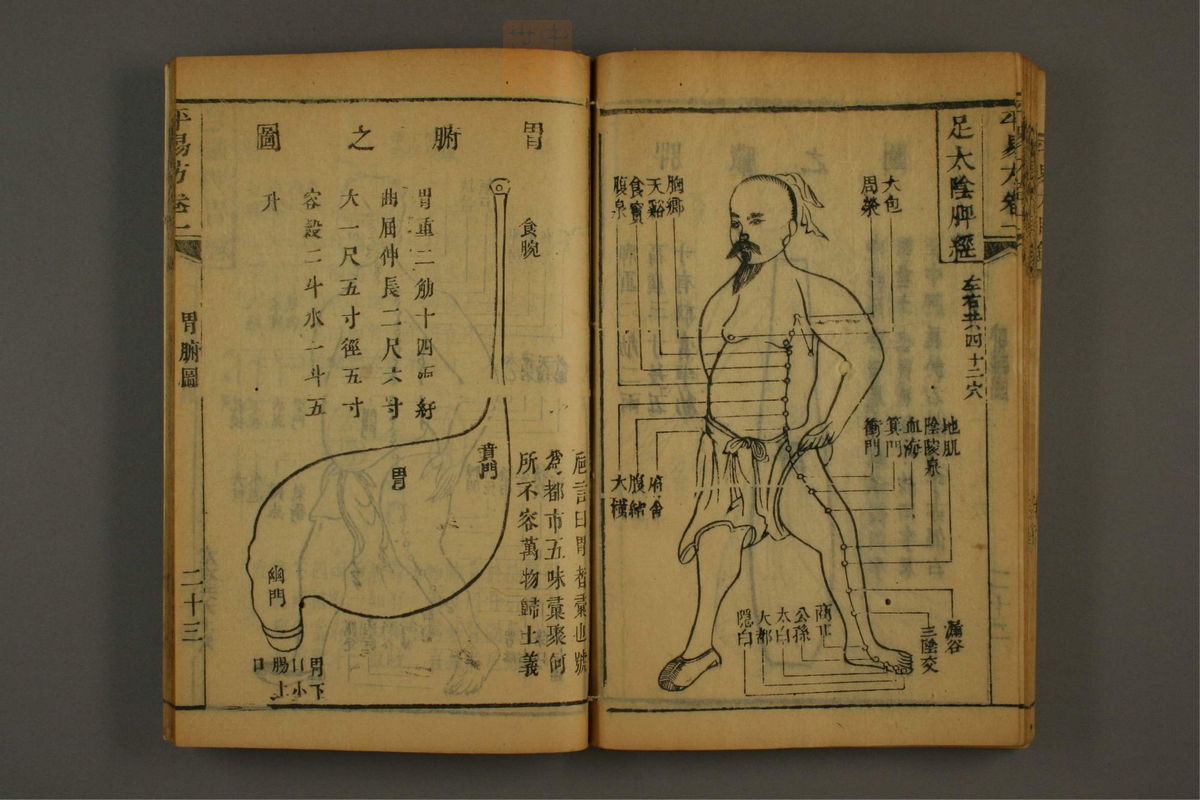 足太陰脾經
左右共四十二穴
大包
周榮
胸鄉
天谿
食竇
腹哀
地肌
陰陵泉
血海
箕門
衝門
府舍
腹結
大橫
漏谷
三陰交
商丘
公孫
太白
大都
隱白
胃腑之圖
胃重二觔十四兩紆
曲屈伸長二尺六寸
大一尺五寸徑五寸
容穀二斗水一斗五
升
食脘
賁門
胃
幽門
胃下
口小
腸上
口
曰胃者彙也號
為都市五味彙聚何
所不容萬物歸土義
平易方卷一
胃腑圖
二十三